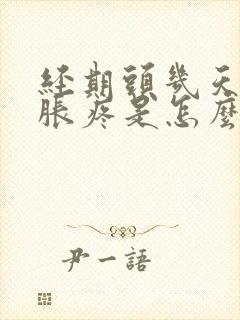 經期頭幾天
脹疼是怎麼
尹一語